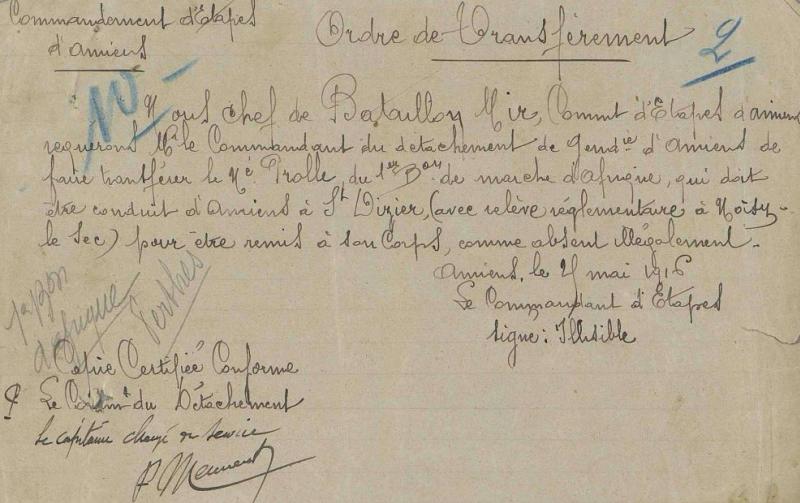 Commandement d'Étapes
d'Amiens
Ordre de Transfèrement
2
10 -
Nous chef de Bataillon Mir, Commt d'Étapes d'Amiens
requerons Mr le Commandant du détachement de gendie d'Amiens de
faire transférer le Né Trolle, du 1er Bon de marche d'Afrique, qui doit
être conduit d'Amiens à St Dizier, (avec relève réglementaire à Noisy-
le Sec) pour être remis à son Corps, comme absent illégalement.
Amiens, le 25 mai 1916
Le Commandant d'Étapes
signé: Illisible
1er Bon
d'Afrique
Perthes
Copie Certifiée Conforme
Le Comm' du Détachement
Le capitaine chargé du service
P.